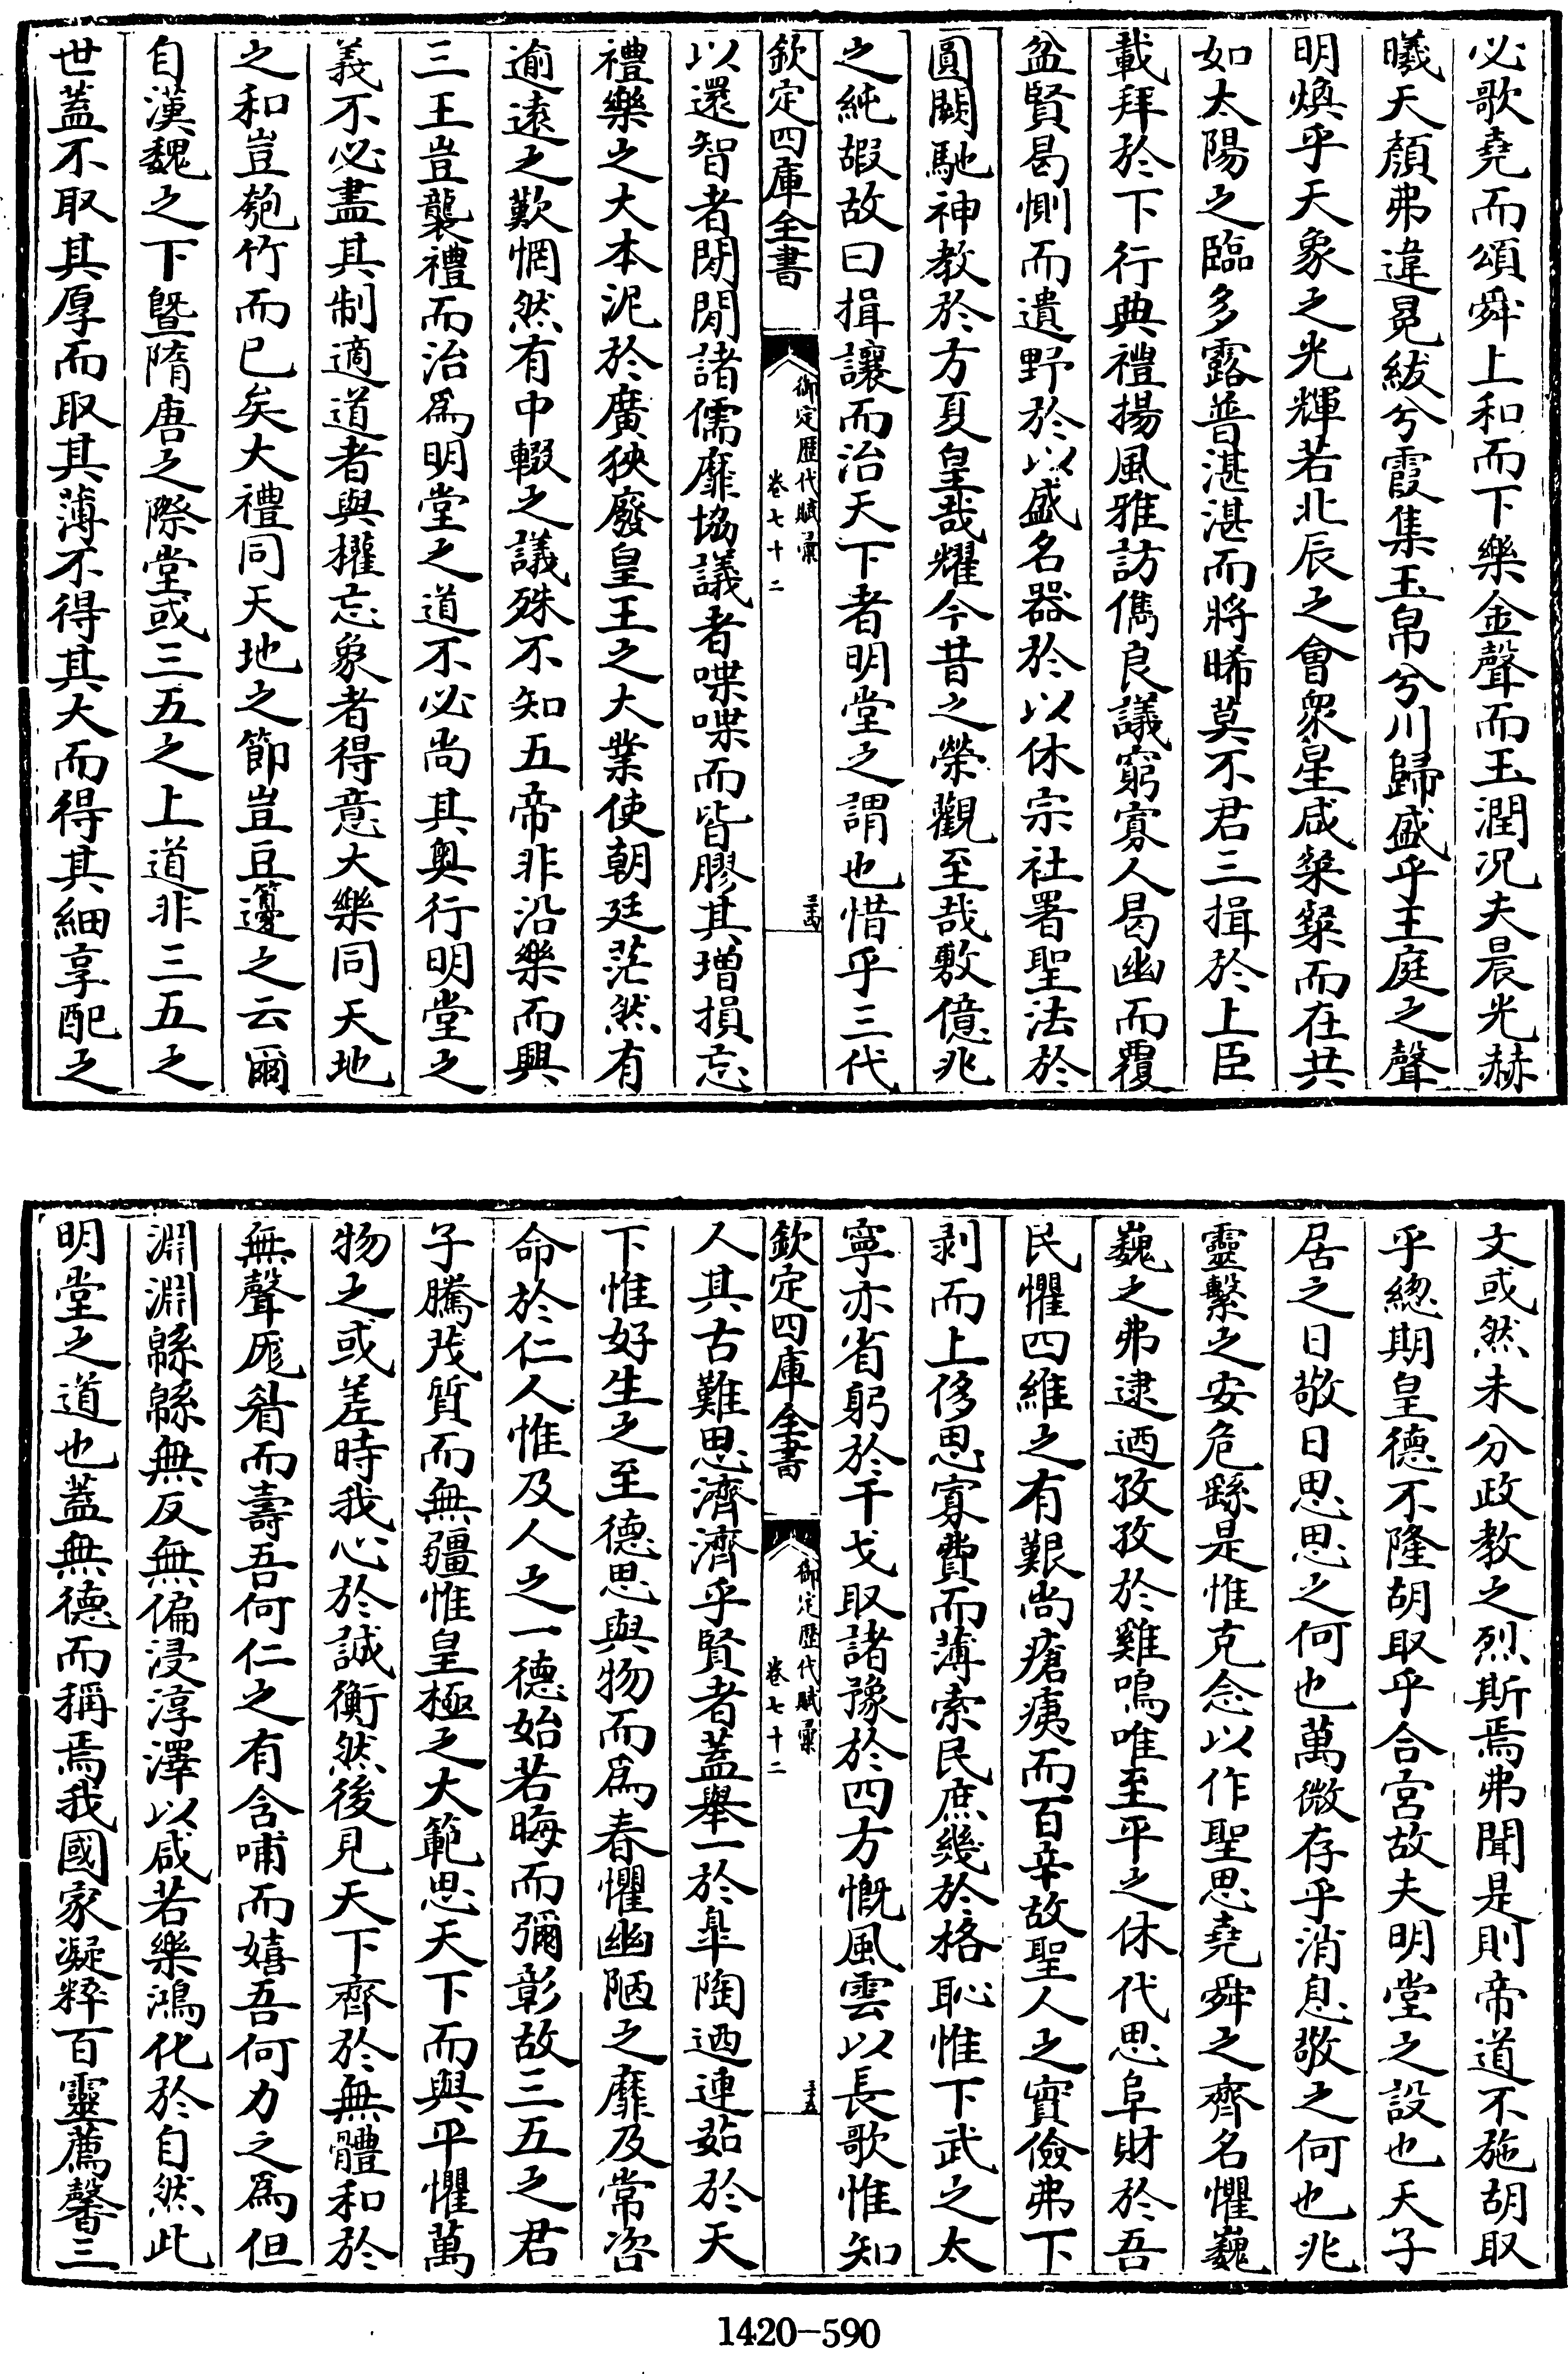 必歌堯而頌舜上和而下樂金聲而玉潤况夫晨光赫
曦天顏弗違冕紱兮霞集玉帛兮川歸盛乎王庭之聲
明煥乎天象之光輝若北辰之會衆星咸粲粲而在共
如太陽之臨多露普湛湛而將晞莫不君三揖於上臣
載拜於下行典禮揚風雅訪儁良議窮寡人曷幽而覆
盆賢曷惻而遺野於以盛名器於以休宗社署聖法於
圓闕馳神教於方夏皇哉耀今昔之榮觀至哉敷億兆
之純嘏故曰揖讓而治天下者明堂之謂也惜乎三代
欽定四庫全書
御定歴代賦彙
卷七十二
三十四
以還智者閒閒諸儒靡協議者喋喋而皆膠其增損忘
禮樂之大本泥於廣狹廢皇王之大業使朝廷茫然有
逾遠之歎惘然有中輟之議殊不知五帝非沿樂而興
三王豈襲禮而治爲明堂之道不必尚其奥行明堂之
義不必盡其制適道者與權忘象者得意大樂同天地
之和豈匏竹而已矣大禮同天地之節豈豆籩之云爾
自漢魏之下暨隋唐之際堂或三五之上道非三五之
世蓋不取其厚而取其薄不得其大而得其細享配之
文或然未分政教之烈斯焉弗聞是則帝道不施胡取
乎緫期皇德不隆胡取乎合宮故夫明堂之設也天子
居之日敬日思思之何也萬微存乎消息敬之何也兆
靈繫之安危繇是惟克念以作聖思堯舜之齊名懼巍
巍之弗逮迺孜孜於雞鳴唯至平之休代思阜財於吾
民懼四維之有艱尚瘡痍而百辛故聖人之寳儉弗下
剥而上侈思寡費而薄索民庶幾於格恥惟下武之太
寧亦省躬於干戈取諸豫於四方慨風雲以長歌惟知
欽定四庫全書
御定歴代賦彙
卷七十二
三十五
人其古難思濟濟乎賢者蓋舉一於臯陶迺連茹於天
下惟好生之至德思與物而爲春懼幽陋之靡及常咨
命於仁人惟及人之一德始若晦而彌彰故三五之君
子騰茂質而無疆惟皇極之大範思天下而與平懼萬
物之或差時我心於誠衡然後見天下齊於無體和於
無聲厖眉而壽吾何仁之有含哺而嬉吾何力之爲但
淵淵緜緜無反無偏浸淳澤以咸若樂鴻化於自然此
明堂之道也蓋無德而稱焉我國家凝粹百靈薦馨三
1420-590